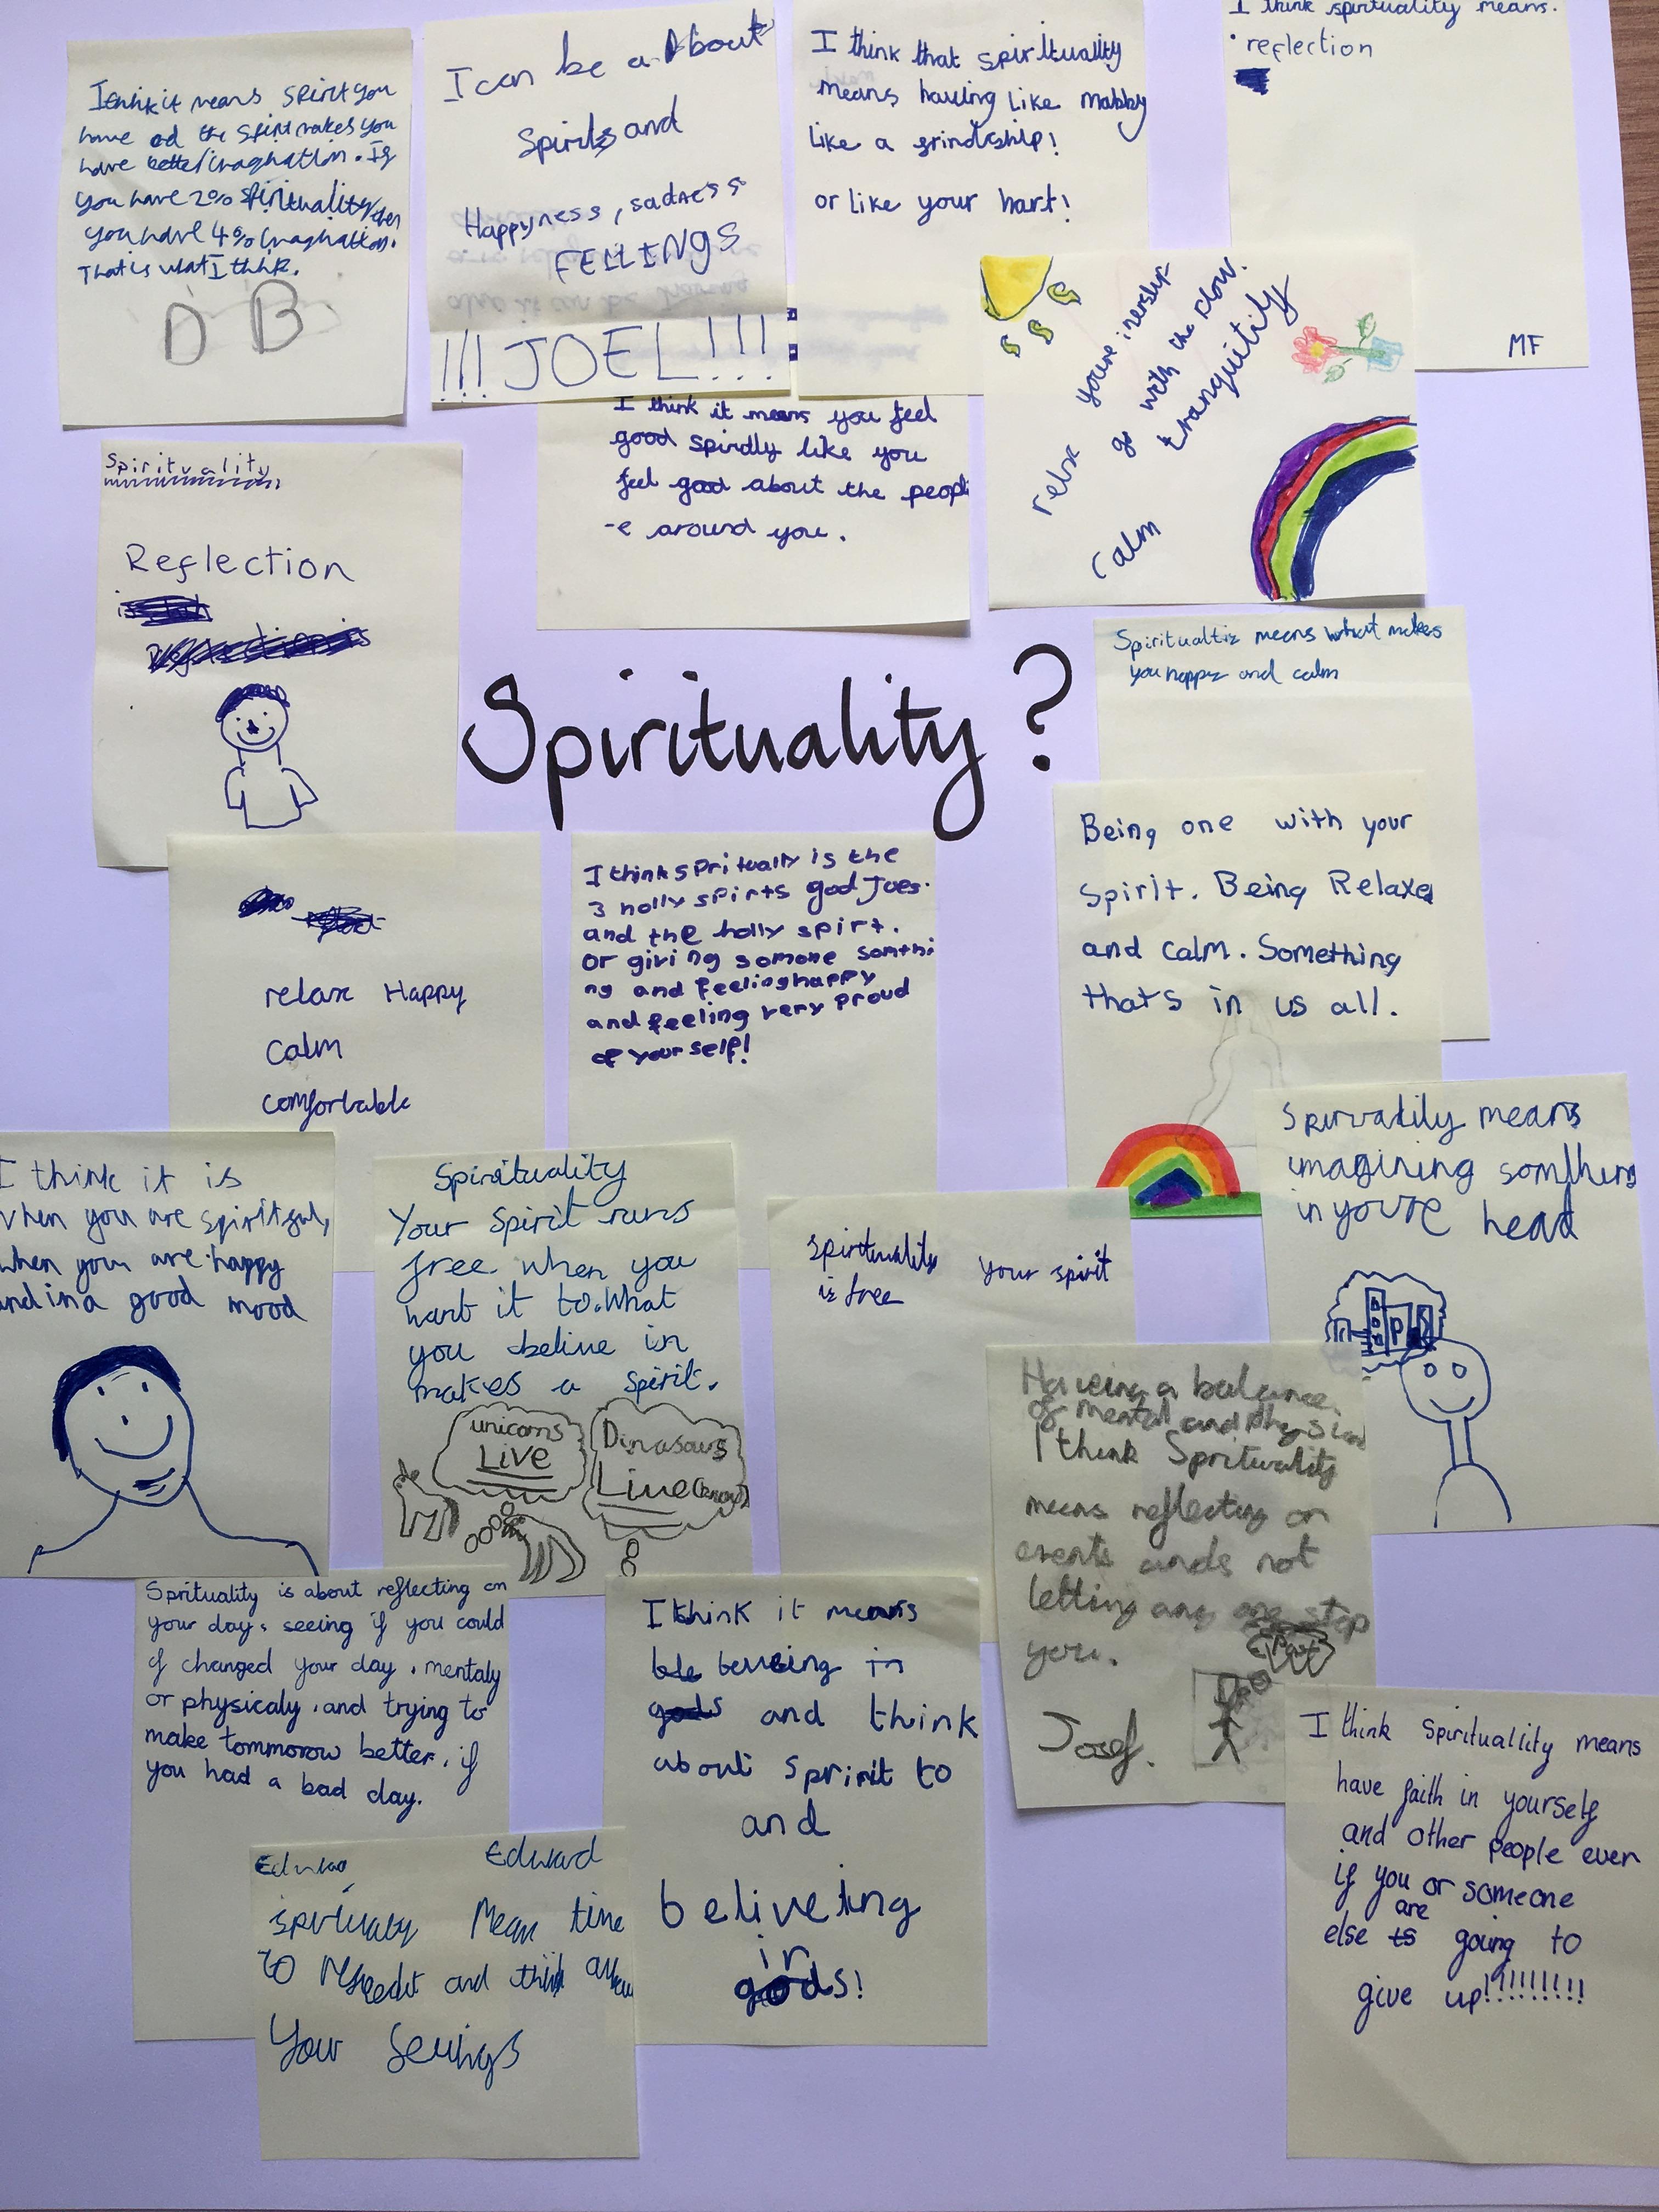 I think it means spirit you
have ad the spirt makes you
have better imaghation. If
you have 2% spirituality then
you have 4% imaghation.
That is what I think.
D B
I can be a About
Spirits and
Happyness, sadness
FELLINGS
!!! JOEL!!!
I think that spirituality
means having like mabby
like a frindship!
or like your hart!
I think spirituality means.
• reflection
MF
I think it means you feel
good spirdly like you
feel good about the peopl
-e around you.
relax youre inership
go with the flow.
tranquility
calm
Spirituality
Reflection
Spirituality?
Spiritualtiz means what makes
you happy and calm
Being one with your
spirit. Being Relaxed
and calm. Something
that's in us all.
relax Happy
calm
comfortable
I think spritually is the
3 holly spirts god Joes.
and the holly spirt.
or giving somone somthi
ng and feeling happy
and feeling very proud
of your self!
Spiruadily means
imagining somthing
in youre head
I think it is
when you are spiritful,
when you are happy
and in a good mood
Spirituality
Your spirit runs
free when you
want it to. What
you belive in
makes a spirit.
unicorns
LIVE
Dinasours
Live
spirituality your spirit
is free
Haveing a balance
of mental and physical
I think Sprituality
means reflecting on
events ands not
letting any one stop
you.
Josef.
Sprituality is about reflecting on
your day, seeing if you could
of changed your day, mentaly
or physicaly, and trying to
make tommorow better, if
you had a bad day.
I think it means
beuieing in
gods and think
about sprirt to
and
beliveting
in
gods!
I think Spirituallity means
have faith in yourself
and other people even
if you or someone
else are going to
give up!!!!!!!!!
Edward
Mean time
to and think
Your feelings